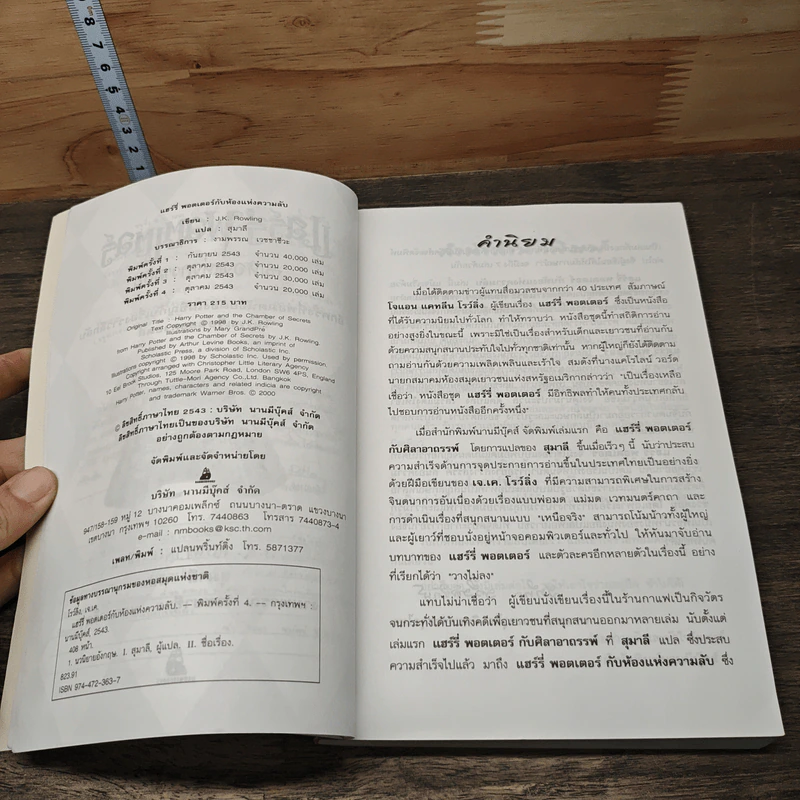 8 7 6 5 4 3 2
แฮร์รี่ พอตเตอร์กับห้องแห่งความลับ
เขียน : J.K. Rowling
แปล : สุมาลี
บรรณาธิการ : งามพรรณ เวชชาชีวะ
พิมพ์ครั้งที่ 1 : กันยายน 2543 จำนวน 40,000 เล่ม
พิมพ์ครั้งที่ 2 : ตุลาคม 2543 จำนวน 20,000 เล่ม
พิมพ์ครั้งที่ 3 : ตุลาคม 2543 จำนวน 30,000 เล่ม
พิมพ์ครั้งที่ 4 : ตุลาคม 2543 จำนวน 20,000 เล่ม
ราคา 215 บาท
Original Title : Harry Potter and the Chamber of Secrets
Text Copyright © 1998 by J.K. Rowling
Illustrations by Mary GrandPré
from Harry Potter and the Chamber of Secrets by J.K. Rowling.
Published by Arthur Levine Books, an imprint of
Scholastic Press, a division of Scholastic Inc.
Illustrations copyright © 1998 by Scholastic Inc. Used by permission.
Copyright arranged with Christopher Little Literary Agency
10 Eel Brook Studios, 125 Moore Park Road, London SW6 4PS, England
Through Tuttle-Mori Agency Co.,Ltd. Bangkok
Harry Potter, names, characters and related indicia are copyright
and trademark Warner Bros. © 2000
© ลิขสิทธิ์ภาษาไทย 2543 : บริษัท นานมีบุ๊คส์ จำกัด
ลิขสิทธิ์ภาษาไทยเป็นของบริษัท นานมีบุ๊คส์ จำกัด
อย่างถูกต้องตามกฎหมาย
จัดพิมพ์และจัดจำหน่ายโดย
บริษัท นานมีบุ๊คส์ จำกัด
947/158-159 หมู่ 12 บางนาคอมเพล็กซ์ ถนนบางนา-ตราด แขวงบางนา
เขตบางนา กรุงเทพฯ 10260 โทร. 7440863 โทรสาร 7440873-4
e-mail : nmbooks@ksc.th.com
เพลท/พิมพ์ : แปลนพริ้นท์ติ้ง โทร. 5871377
ข้อมูลทางบรรณานุกรมของหอสมุดแห่งชาติ
โรว์ลิ่ง, เจ.เค.
แฮร์รี่ พอตเตอร์กับห้องแห่งความลับ. -- พิมพ์ครั้งที่ 4. -- กรุงเทพฯ :
นานมีบุ๊คส์, 2543.
408 หน้า.
1. นวนิยายอังกฤษ. I. สุมาลี, ผู้แปล. II. ชื่อเรื่อง.
823.91
ISBN 974-472-363-7
คำนิยม
เมื่อได้ติดตามข่าวผู้แทนสื่อมวลชนจากกว่า 40 ประเทศ สัมภาษณ์
โจแอน แคทลีน โรว์ลิ่ง ผู้เขียนเรื่อง แฮร์รี่ พอตเตอร์ ซึ่งเป็นหนังสือ
ที่ได้รับความนิยมไปทั่วโลก ทำให้ทราบว่า หนังสือชุดนี้ทำสถิติการอ่าน
อย่างสูงยิ่งในขณะนี้ เพราะมิใช่เป็นเรื่องสำหรับเด็กและเยาวชนที่อ่านกัน
ด้วยความสนุกสนานประทับใจไปทั่วทุกชาติเท่านั้น หากผู้ใหญ่ก็ยังได้ติดตาม
ถามอ่านกันด้วยความเพลิดเพลินและเร้าใจ สมดังที่นางแคโรไลน์ วอร์ด
นายกสมาคมห้องสมุดเยาวชนแห่งสหรัฐอเมริกากล่าวว่า "เป็นเรื่องเหลือ
เชื่อว่า หนังสือชุด แฮร์รี่ พอตเตอร์ มีอิทธิพลทำให้คนทั้งประเทศกลับ
ไปชอบการอ่านหนังสืออีกครั้งหนึ่ง"
เมื่อสำนักพิมพ์นานมีบุ๊คส์ จัดพิมพ์เล่มแรก คือ แฮร์รี่ พอตเตอร์
กับศิลาอาถรรพ์ โดยการแปลของ สุมาลี ขึ้นเมื่อเร็วๆ นี้ นับว่าประสบ
ความสำเร็จด้านการจุดประกายการอ่านขึ้นในประเทศไทยเป็นอย่างยิ่ง
ด้วยฝีมือเขียนของ เจ.เค. โรว์ลิ่ง ที่มีความสามารถพิเศษในการสร้าง
จินตนาการอันเนื่องด้วยเรื่องแบบพ่อมด แม่มด เวทมนตร์คาถา และ
การดำเนินเรื่องที่สนุกสนานแบบ "เหนือจริง" สามารถโน้มน้าวทั้งผู้ใหญ่
และผู้เยาว์ที่ชอบนั่งอยู่หน้าจอคอมพิวเตอร์และทั่วไป ให้หันมาจับอ่าน
บทบาทของ แฮร์รี่ พอตเตอร์ และตัวละครอีกหลายตัวในเรื่องนี้ อย่าง
ที่เรียกได้ว่า "วางไม่ลง"
แทบไม่น่าเชื่อว่า ผู้เขียนนั่งเขียนเรื่องนี้ในร้านกาแฟเป็นกิจวัตร
จนกระทั่งได้บันเทิงคดีเพื่อเยาวชนที่สนุกสนานออกมาหลายเล่ม นับตั้งแต่
เล่มแรก แฮร์รี่ พอตเตอร์ กับศิลาอาถรรพ์ ที่ สุมาลี แปล ซึ่งประสบ
ความสำเร็จไปแล้ว มาถึง แฮร์รี่ พอตเตอร์ กับห้องแห่งความลับ ซึ่ง